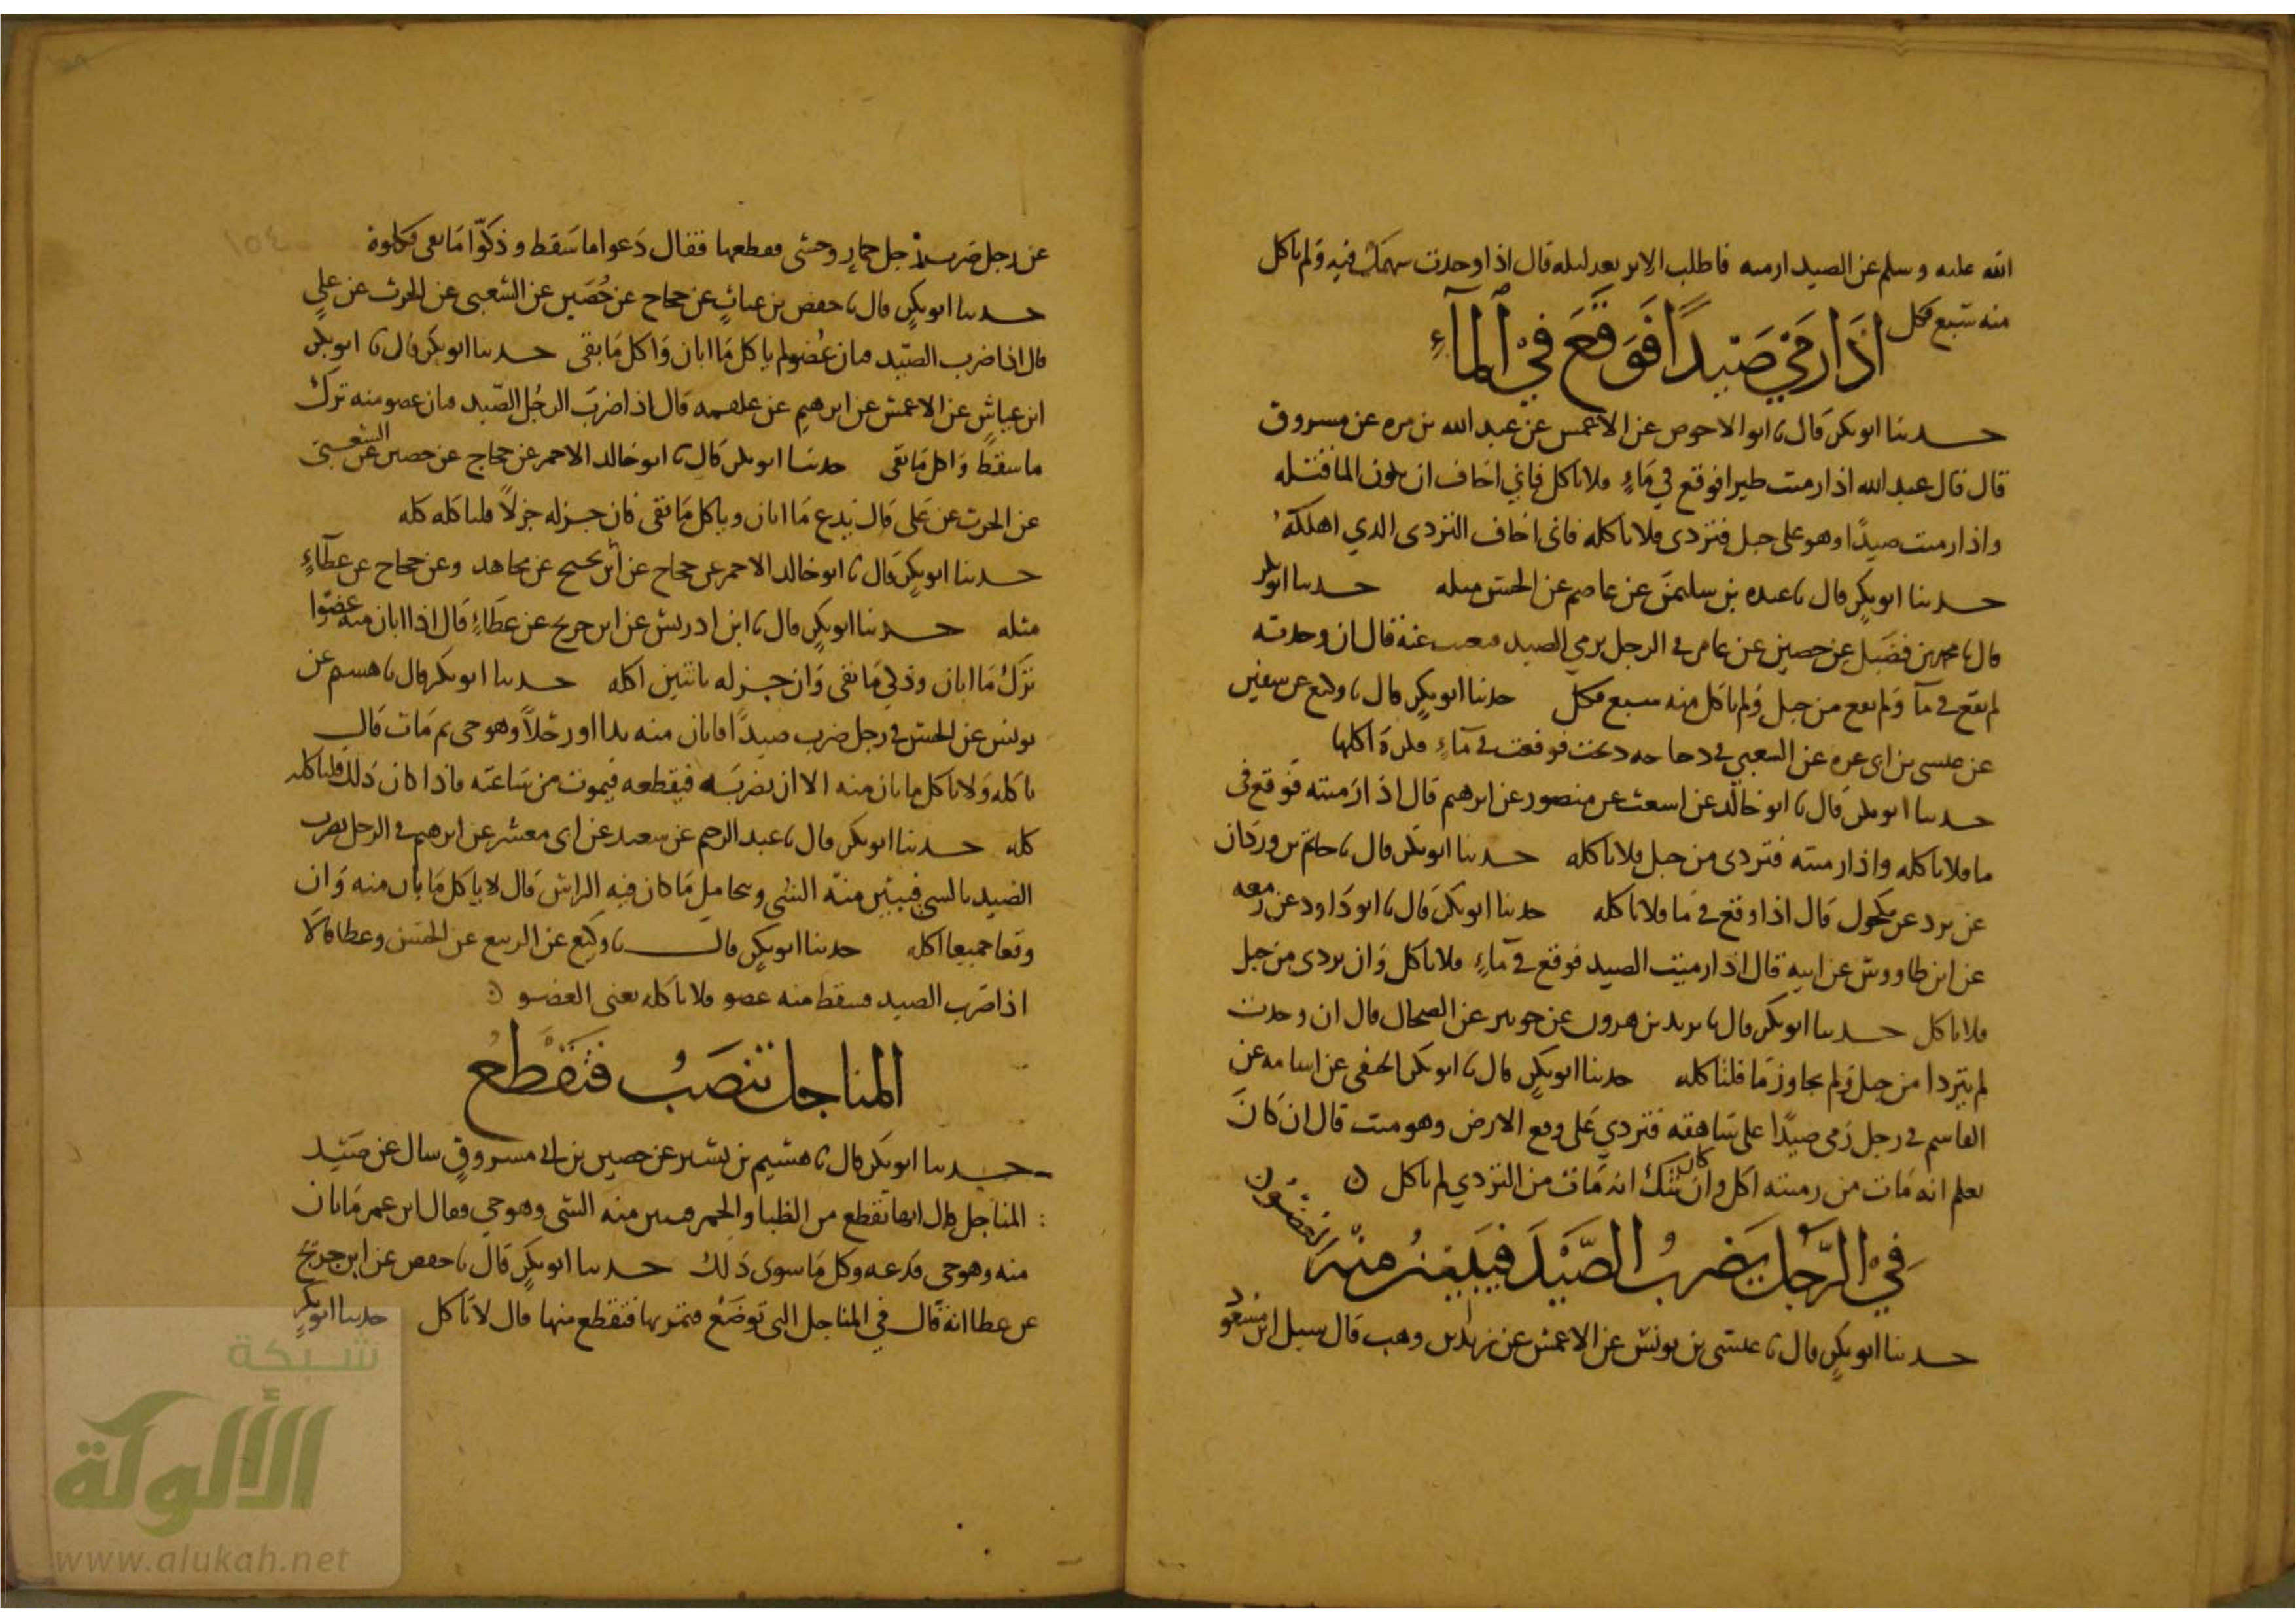 الله عليه وسلم عن الصيد ارميه فاطلب الاثر بعد ليله قال اذا وجدت سهمك فيه ولم ياكل
منه سبع فكل
اذا رمي صيدا فوقع في المآء
حدثنا ابو بكر قال نا ابو الاحوص عن الاعمش عن عبد الله بن مره عن مسروق
قال قال عبد الله اذا رميت طيرا فوقع في مآء فلا تاكل فاني اخاف ان يكون الما قتله
واذا رميت صيدا وهو على جبل فتردى فلا تاكله فاني اخاف التردى الذي اهلكه
حدثنا ابو بكر قال نا عبده بن سليمن عن عاصم عن الحسن مثله حدثنا ابو بكر
قال نا محمد بن فضيل عن حصين عن عامر في الرجل يرمي الصيد فيغيب عنه قال ان وجدته
لم يقع في مآ ولم يقع من جبل ولم ياكل منه سبع فكل حدثنا ابو بكر قال نا وكيع عن سفين
عن عيسى بن ابي عزه عن الشعبي في دجاجه ذبحت فوقعت في مآء فكره اكلها
حدثنا ابو بكر قال نا ابو خالد عن اشعث عن منصور عن ابرهيم قال اذا رميته فوقع في
ما فلا تاكله واذا رميته فتردى من جبل فلا تاكله حدثنا ابو بكر قال نا حاتم بن وردان
عن برد عن مكحول قال اذا وقع في ما فلا تاكله حدثنا ابو بكر قال نا ابو داود عن زمعه
عن ابن طاووس عن ابيه قال اذا رميت الصيد فوقع في مآء فلا تاكل وان تردى من جبل
فلا تاكل حدثنا ابو بكر قال نا يزيد بن هرون عن جويبر عن الضحاك قال ان وجدت
لم يتردا من جبل ولم يجاوز ما فلتاكله حدثنا ابو بكر قال نا ابو بكر الحنفي عن اسامه عن
القاسم في رجل رمى صيدا على شاهقه فتردي على وقع الارض وهو ميت قال ان كان
يعلم انه مات من رميته اكل وان كان شك انه مات من التردي لم ياكل
في الرجل يضرب الصيد فيبين منه العضو
حدثنا ابو بكر قال نا عيسى بن يونس عن الاعمش عن زيد بن وهب قال سيل ابن مسعود
عن رجل ضرب رجل حمار وحشي فقطعها فقال دعوا ما سقط وذكوا ما بقي فكلوه
حدثنا ابو بكر قال نا حفص بن غياث عن حجاج عن حصين عن الشعبي عن الحرث عن علي
قال اذا ضرب الصيد فبان عضو لم ياكل ما ابان واكل ما بقي حدثنا ابو بكر قال نا ابو بكر
ابن عياش عن الاعمش عن ابرهيم عن علقمه قال اذا ضرب الرجل الصيد فبان عضو منه ترك
ما سقط واكل ما بقي حدثنا ابو بكر قال نا ابو خالد الاحمر عن حجاج عن حصين عن الشعبي
عن الحرث عن علي قال يدع ما ابان وياكل ما بقي فان جزله جزلا فلياكله كله
حدثنا ابو بكر قال نا ابو خالد الاحمر عن حجاج عن ابن نجيح عن مجاهد وعن حجاج عن عطآء
مثله حدثنا ابو بكر قال نا ابن ادريس عن ابن جريج عن عطاء قال اذا ابان منه عضوا
ترك ما ابان وذكي ما بقي وان جزله باثنين اكله حدثنا ابو بكر قال نا هشيم عن
يونس عن الحسن في رجل ضرب صيدا فابان منه يدا او رجلا وهو حي ثم مات قال
ياكله ولا ياكل ما بان منه الا ان يضربه فيقطعه فيموت من ساعته فاذا كان ذلك فلياكله
كله حدثنا ابو بكر قال نا عبد الرحيم عن سعيد عن ابي معشر عن ابرهيم في الرجل يضرب
الصيد بالشي فيبين منه الشي ويتحامل ما كان فيه الراس قال لا ياكل ما بان منه وان
وقعا جميعا اكله حدثنا ابو بكر قال نا وكيع عن الربيع عن الحسن وعطا قالا
اذا ضرب الصيد فسقط منه عضو فلا ياكله يعني العضو
المناجل تنصب فتقطع
حدثنا ابو بكر قال نا هشيم بن بشير عن حصين بن مسروق سال عن صيد
المناجل قال انها تقطع من الظبا والحمر فيبين منه الشي وهو حي فقال ابن عمر ما بان
منه وهو حي فدعه وكل ما سوى ذلك حدثنا ابو بكر قال نا حفص عن ابن جريج
عن عطا انه قال في المناجل التي توضع فتمر بها فتقطع منها قال لا تاكل حدثنا ابو بكر
شبكة
الألوكة
www.alukah.net